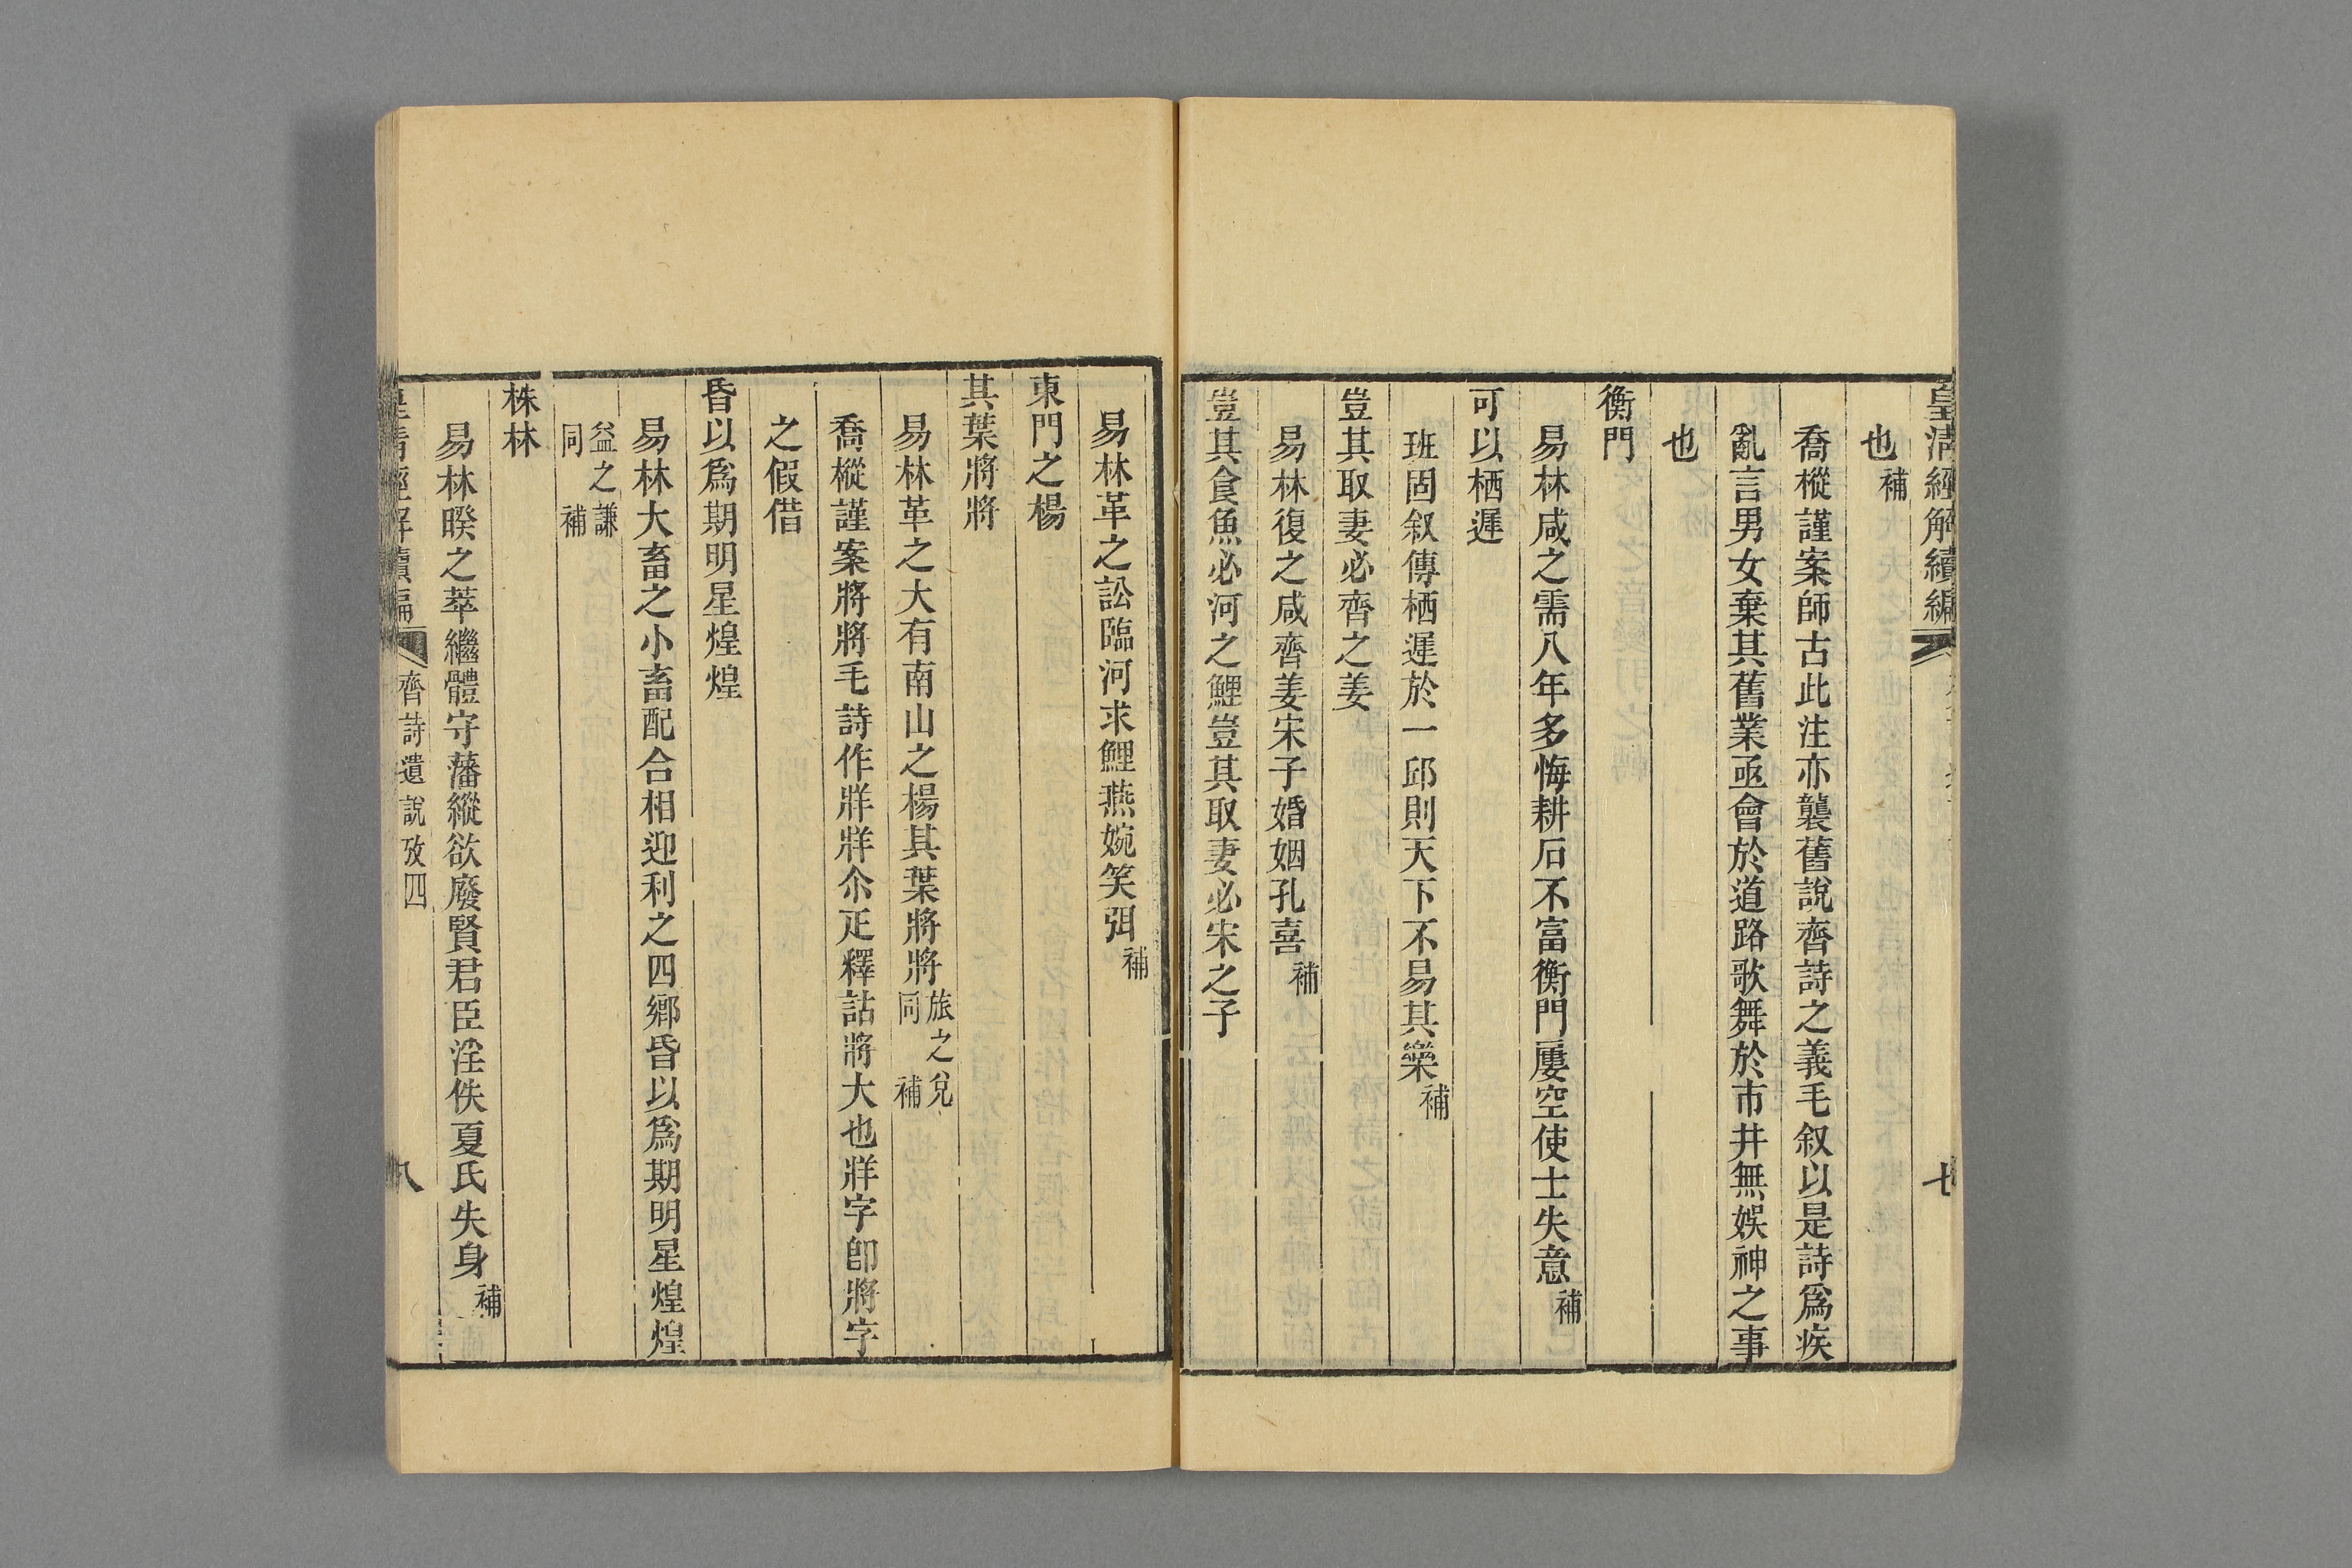 皇清經解續編
七
也補
喬樅謹案師古此注亦襲舊說齊詩之義毛叙以是詩爲疾
亂言男女棄其舊業亟會於道路歌舞於市井無娛神之事
也
衡門
易林咸之需八年多悔耕石不富衡門屢空使士失意補
可以栖遲
班固叙傳栖遲於一邱則天下不易其樂補
豈其取妻必齊之姜
易林復之咸齊姜宋子婚姻孔喜補
豈其食魚必河之鯉豈其取妻必宋之子
易林革之訟臨河求鯉燕婉笑弭補
東門之楊
其葉將將
易林革之大有南山之楊其葉將將旅之兌同補
喬樅謹案將將毛詩作牂牂尒疋釋詁將大也牂字卽將字
之假借
昏以爲期明星煌煌
易林大畜之小畜配合相迎利之四鄉昏以爲期明星煌煌
益之謙同補
株林
易林暌之萃繼體守藩縱欲廢賢君臣淫佚夏氏失身補
皇清經解續編
齊詩遺說攷四
八